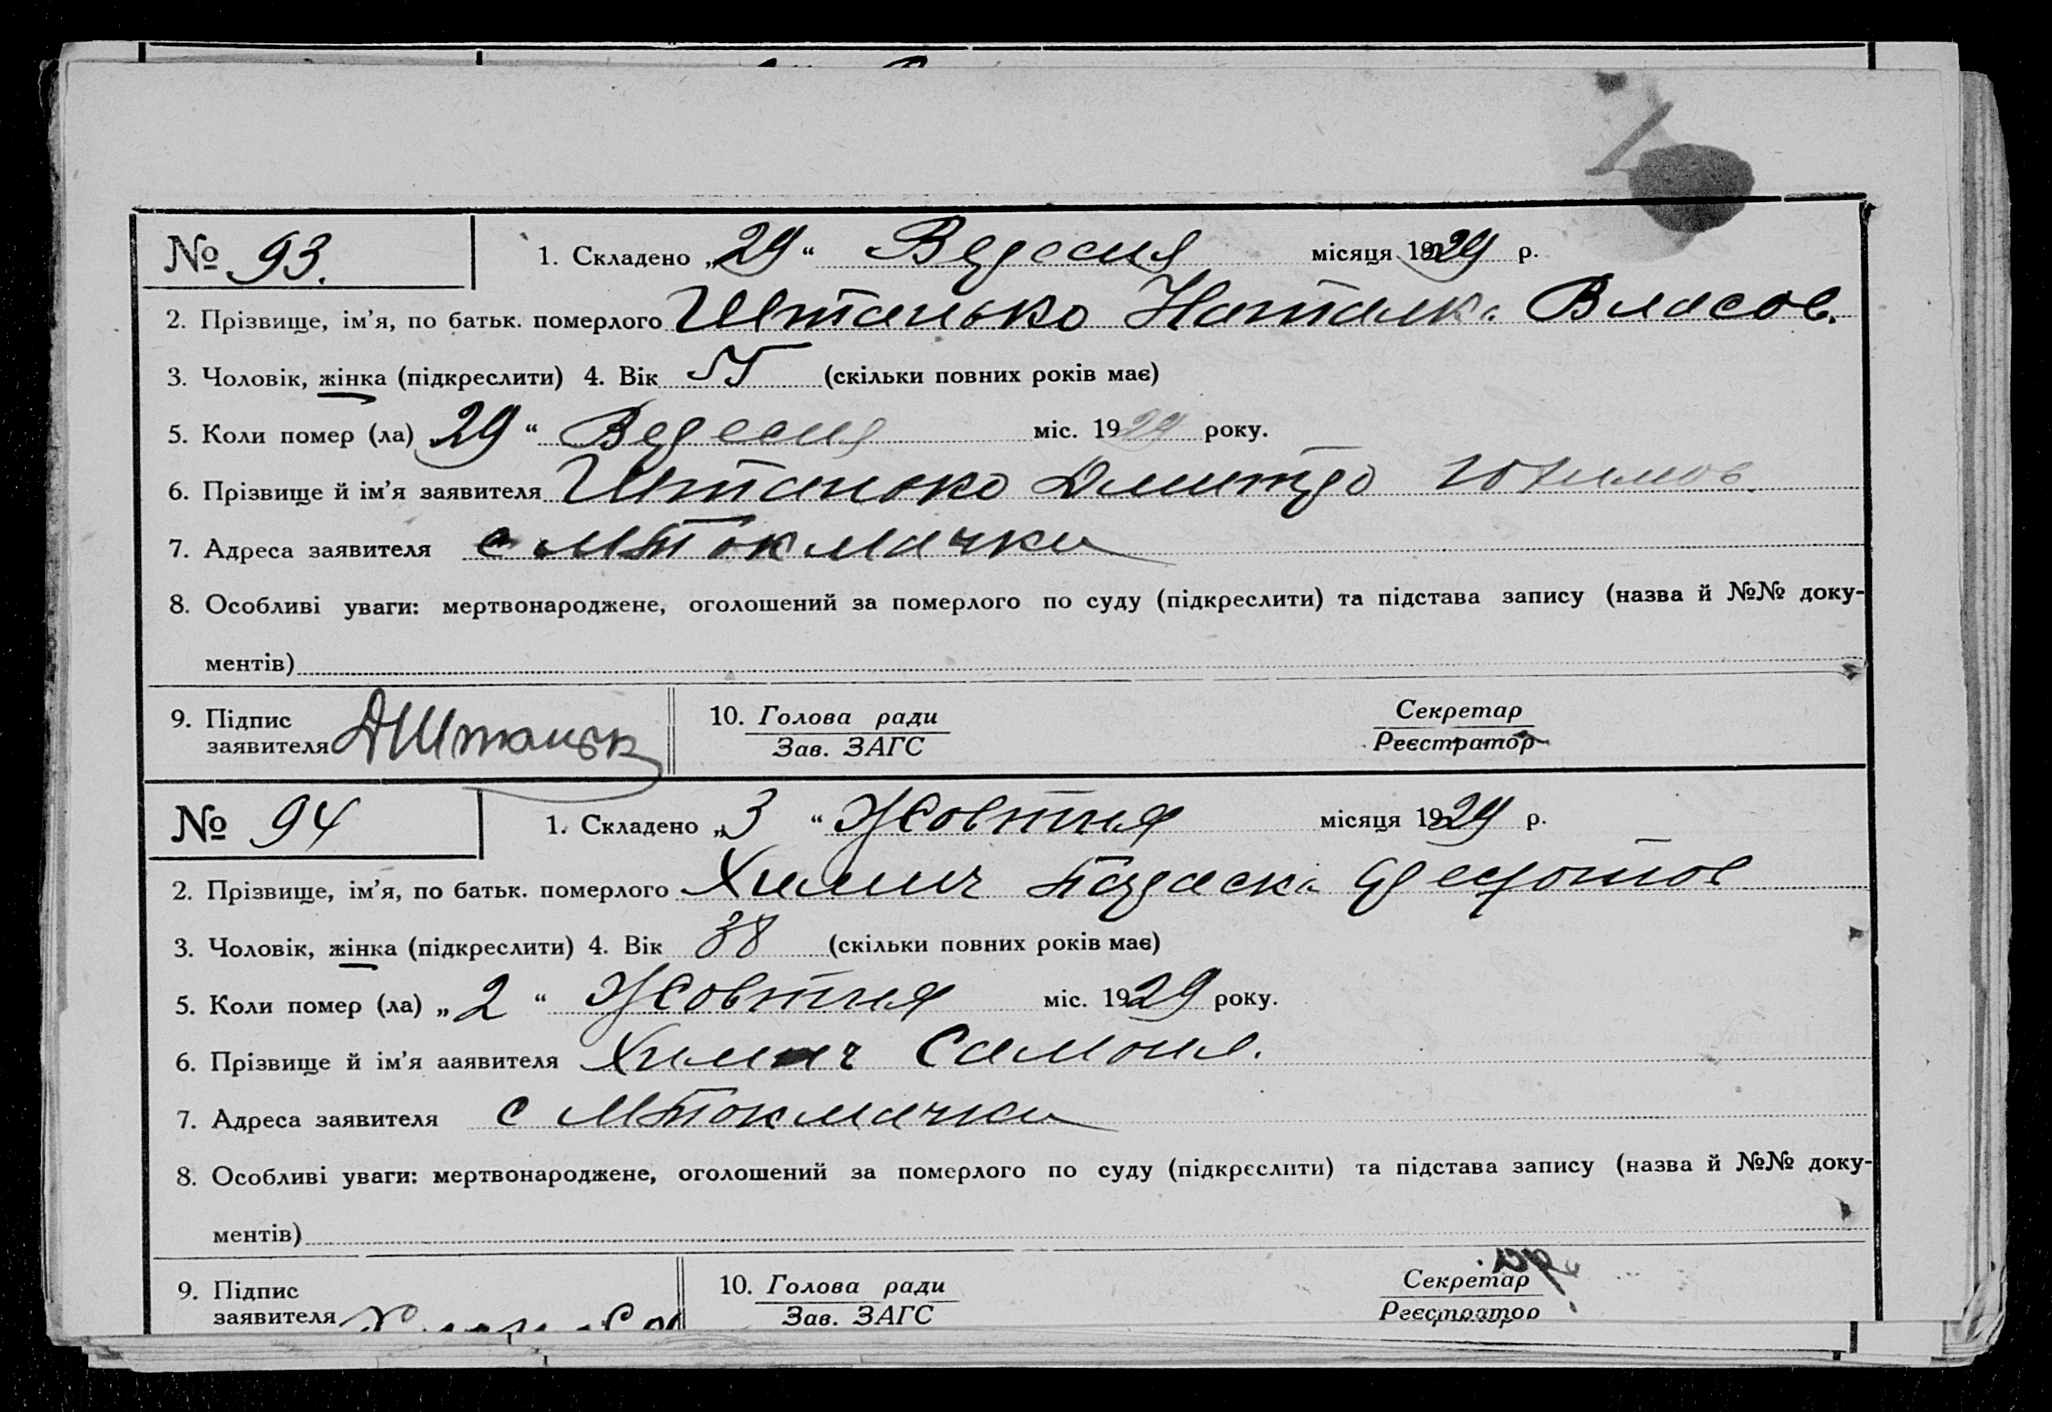 № 93. 1. Складено „29“ Вересня місяця 1929 р.
2. Прізвище, ім’я, по батьк. померлого Штанько Наталка Власов.
3. Чоловік, жінка (підкреслити) 4. Вік 55 (скільки повних років має)
5. Коли помер (ла) „29“ Вересня міс. 1929 року.
6. Прізвище й ім’я заявителя Штанько Дмитро Юхимов.
7. Адреса заявителя с МТокмачка
8. Особливі уваги: мертвонароджене, оголошений за померлого по суду (підкреслити) та підстава запису (назва й №№ доку-
ментів)
9. Підпис заявителя ДШтаньк 10. Голова ради Секретар
Зав. ЗАГС Реєстратор
№ 94 1. Складено „3“ Жовтня місяця 1929 р.
2. Прізвище, ім’я, по батьк. померлого Химич Параска Федотов
3. Чоловік, жінка (підкреслити) 4. Вік 38 (скільки повних років має)
5. Коли помер (ла) „2“ Жовтня міс. 1929 року.
6. Прізвище й ім’яааявителя Химич Самоил.
7. Адреса заявителя с МТокмачка
8. Особливі уваги: мертвонароджене, оголошений за померлого по суду (підкреслити) та підстава запису (назва й №№ доку-
ментів)
9. Підпис заявителя 10. Голова ради Секретар
Зав. ЗАГС Реєстратор